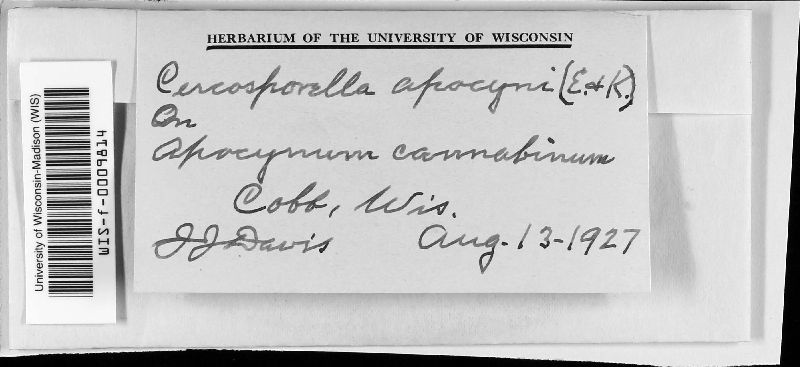 HERBARIUM OF THE UNIVERSITY OF WISCONSIN
Cercosporella apocyni (E. & K.)
On
Apocynum cannabinum
Cobb, Wis.
JJ Davis Aug. 13-1927
University of Wisconsin-Madison (WIS)
WIS-f-0009814